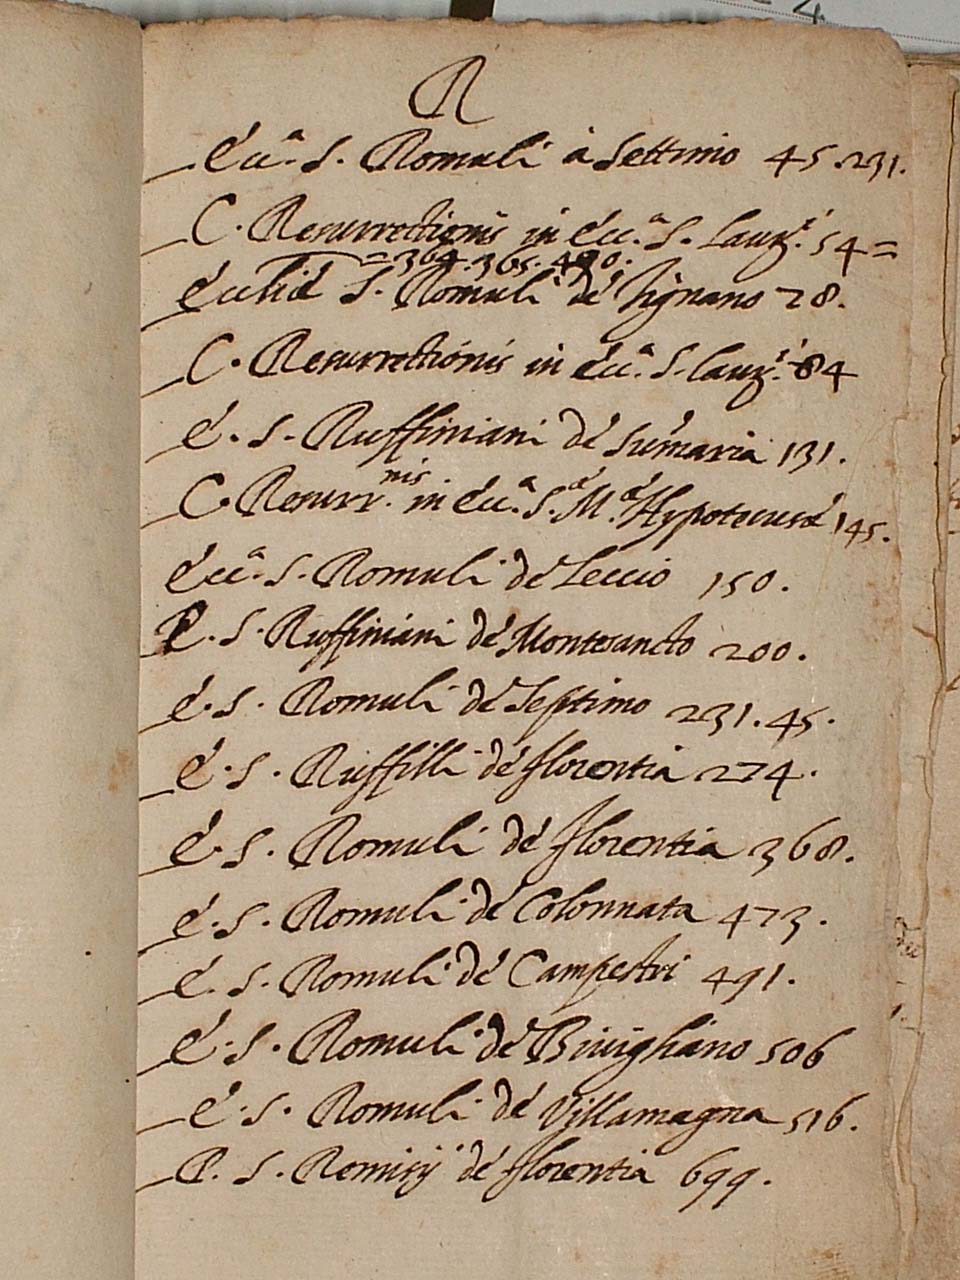 R
Ecc.ª S. Romuli à Settimo 45.231.
C. Resurrectionis in Ecc.ª S. Laur.ⁱ 54=
=364.365.490.
Eccliae S. Romuli de Signano 28.
C. Resurrectionis in Ecc.ª S. Laur.ⁱ 84
E. S. Ruffiniani de Summaria 131.
C. Resurr.nis in Ecc.ª S.ᵉ M.ᵉ Hypotecusae 145.
Ecc.ª S. Romuli de Leccio 150.
P. S. Ruffiniani de Montesancto 200.
E. S. Romuli de Septimo 231.45.
E. S. Ruffilli de florentia 274.
E. S. Romuli de florentia 368.
E. S. Romuli de Colonnata 473.
E. S. Romuli de Campestri 491.
E. S. Romuli de Bivigliano 506
E. S. Romuli de Villamagna 516.
P. S. Remigij de florentia 699.